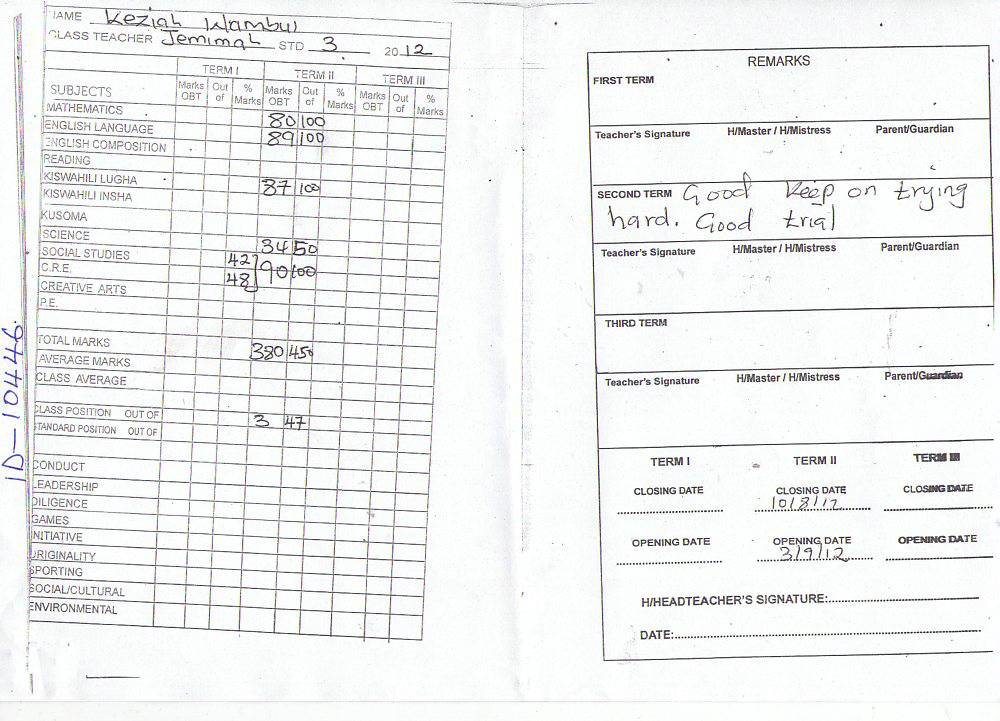 NAME Keziah Wambui
CLASS TEACHER Jemimah STD 3 2012
TERM I TERM II TERM III
SUBJECTS Marks OBT Out of % Marks Marks OBT Out of % Marks Marks OBT Out of % Marks
MATHEMATICS 80 100
ENGLISH LANGUAGE 89 100
ENGLISH COMPOSITION
READING
KISWAHILI LUGHA 87 100
KISWAHILI INSHA
KUSOMA
SCIENCE 34 50
SOCIAL STUDIES 42
C.R.E. 90 100
CREATIVE ARTS 48
P.E.
TOTAL MARKS 380 450
AVERAGE MARKS
CLASS AVERAGE
CLASS POSITION OUT OF 3 47
STANDARD POSITION OUT OF
CONDUCT
LEADERSHIP
DILIGENCE
GAMES
INITIATIVE
ORIGINALITY
SPORTING
SOCIAL/CULTURAL
ENVIRONMENTAL
ID-10446.
REMARKS
FIRST TERM
Teacher's Signature H/Master / H/Mistress Parent/Guardian
SECOND TERM Good keep on trying
hard. Good trial
Teacher's Signature H/Master / H/Mistress Parent/Guardian
THIRD TERM
Teacher's Signature H/Master / H/Mistress Parent/Guardian
TERM I TERM II TERM III
CLOSING DATE CLOSING DATE CLOSING DATE
10/8/12
OPENING DATE OPENING DATE OPENING DATE
3/9/12
H/HEADTEACHER'S SIGNATURE:
DATE: